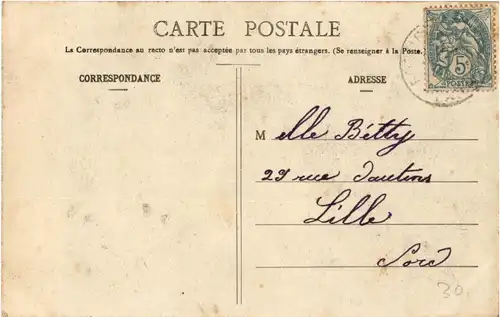 CARTE POSTALE
La Correspondance au recto n'est pas acceptée par tous les pays étrangers. (Se renseigner à la Poste.)
CORRESPONDANCE
ADRESSE
5c
POSTES
Melle Bétty
29 rue
Lille
Nord
30.